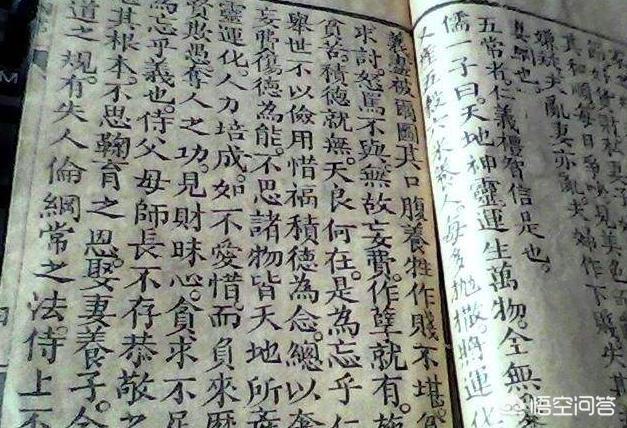 好貨財私妻子
其和順每日爭吵見美色
嫌疏夫亂妻亦亂夫婦作下賤
妻綱也
五常者仁義禮智信是也
儒一子曰。天地神靈運生萬物。全無
人每多拋撒。將運化
義盡破廟圖其口腹養牲作賤不堪
求討。怒罵不與。無故妄費。作孽就有。施
貧苦。積德就無。天良何在。是為忘乎仁
舉世不以儉用惜福積德為念。總以奢
妄費傷德為能。不思諸物皆天地所產
靈運化。人力培成。如不愛惜。而負來歷
貧欺愚奪人之功。見財昧心。貪求不足
為忘乎義也。侍父母師長不存恭敬之
也其根本。不思鞠育之恩。娶妻養子。全
道之規。有失人倫綱常之法。侍上不
悟空问答